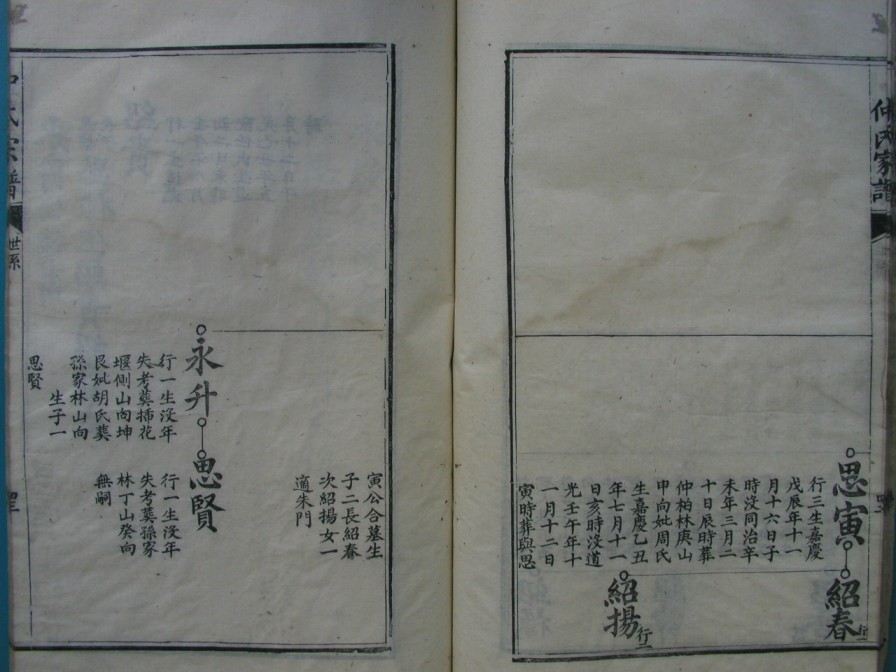 仲氏家譜
思寅
行三生嘉慶
戊辰年十一
月十六日子
時沒同治辛
未年三月二
十日辰時葬
仲柏林庚山
申向妣周氏
生嘉慶乙丑
年七月十一
日亥時沒道
光壬午年十
一月十二日
寅時葬與思
紹春
行一
紹揚
行
寅公合墓生
子二長紹春
次紹揚女一
適朱門
永升
行一生沒年
失考葬插花
堰側山向坤
艮妣胡氏葬
孫家林山向
生子一
思賢
思賢
行一生沒年
失考葬孫家
林丁山癸向
無嗣
氏宗譜
世系